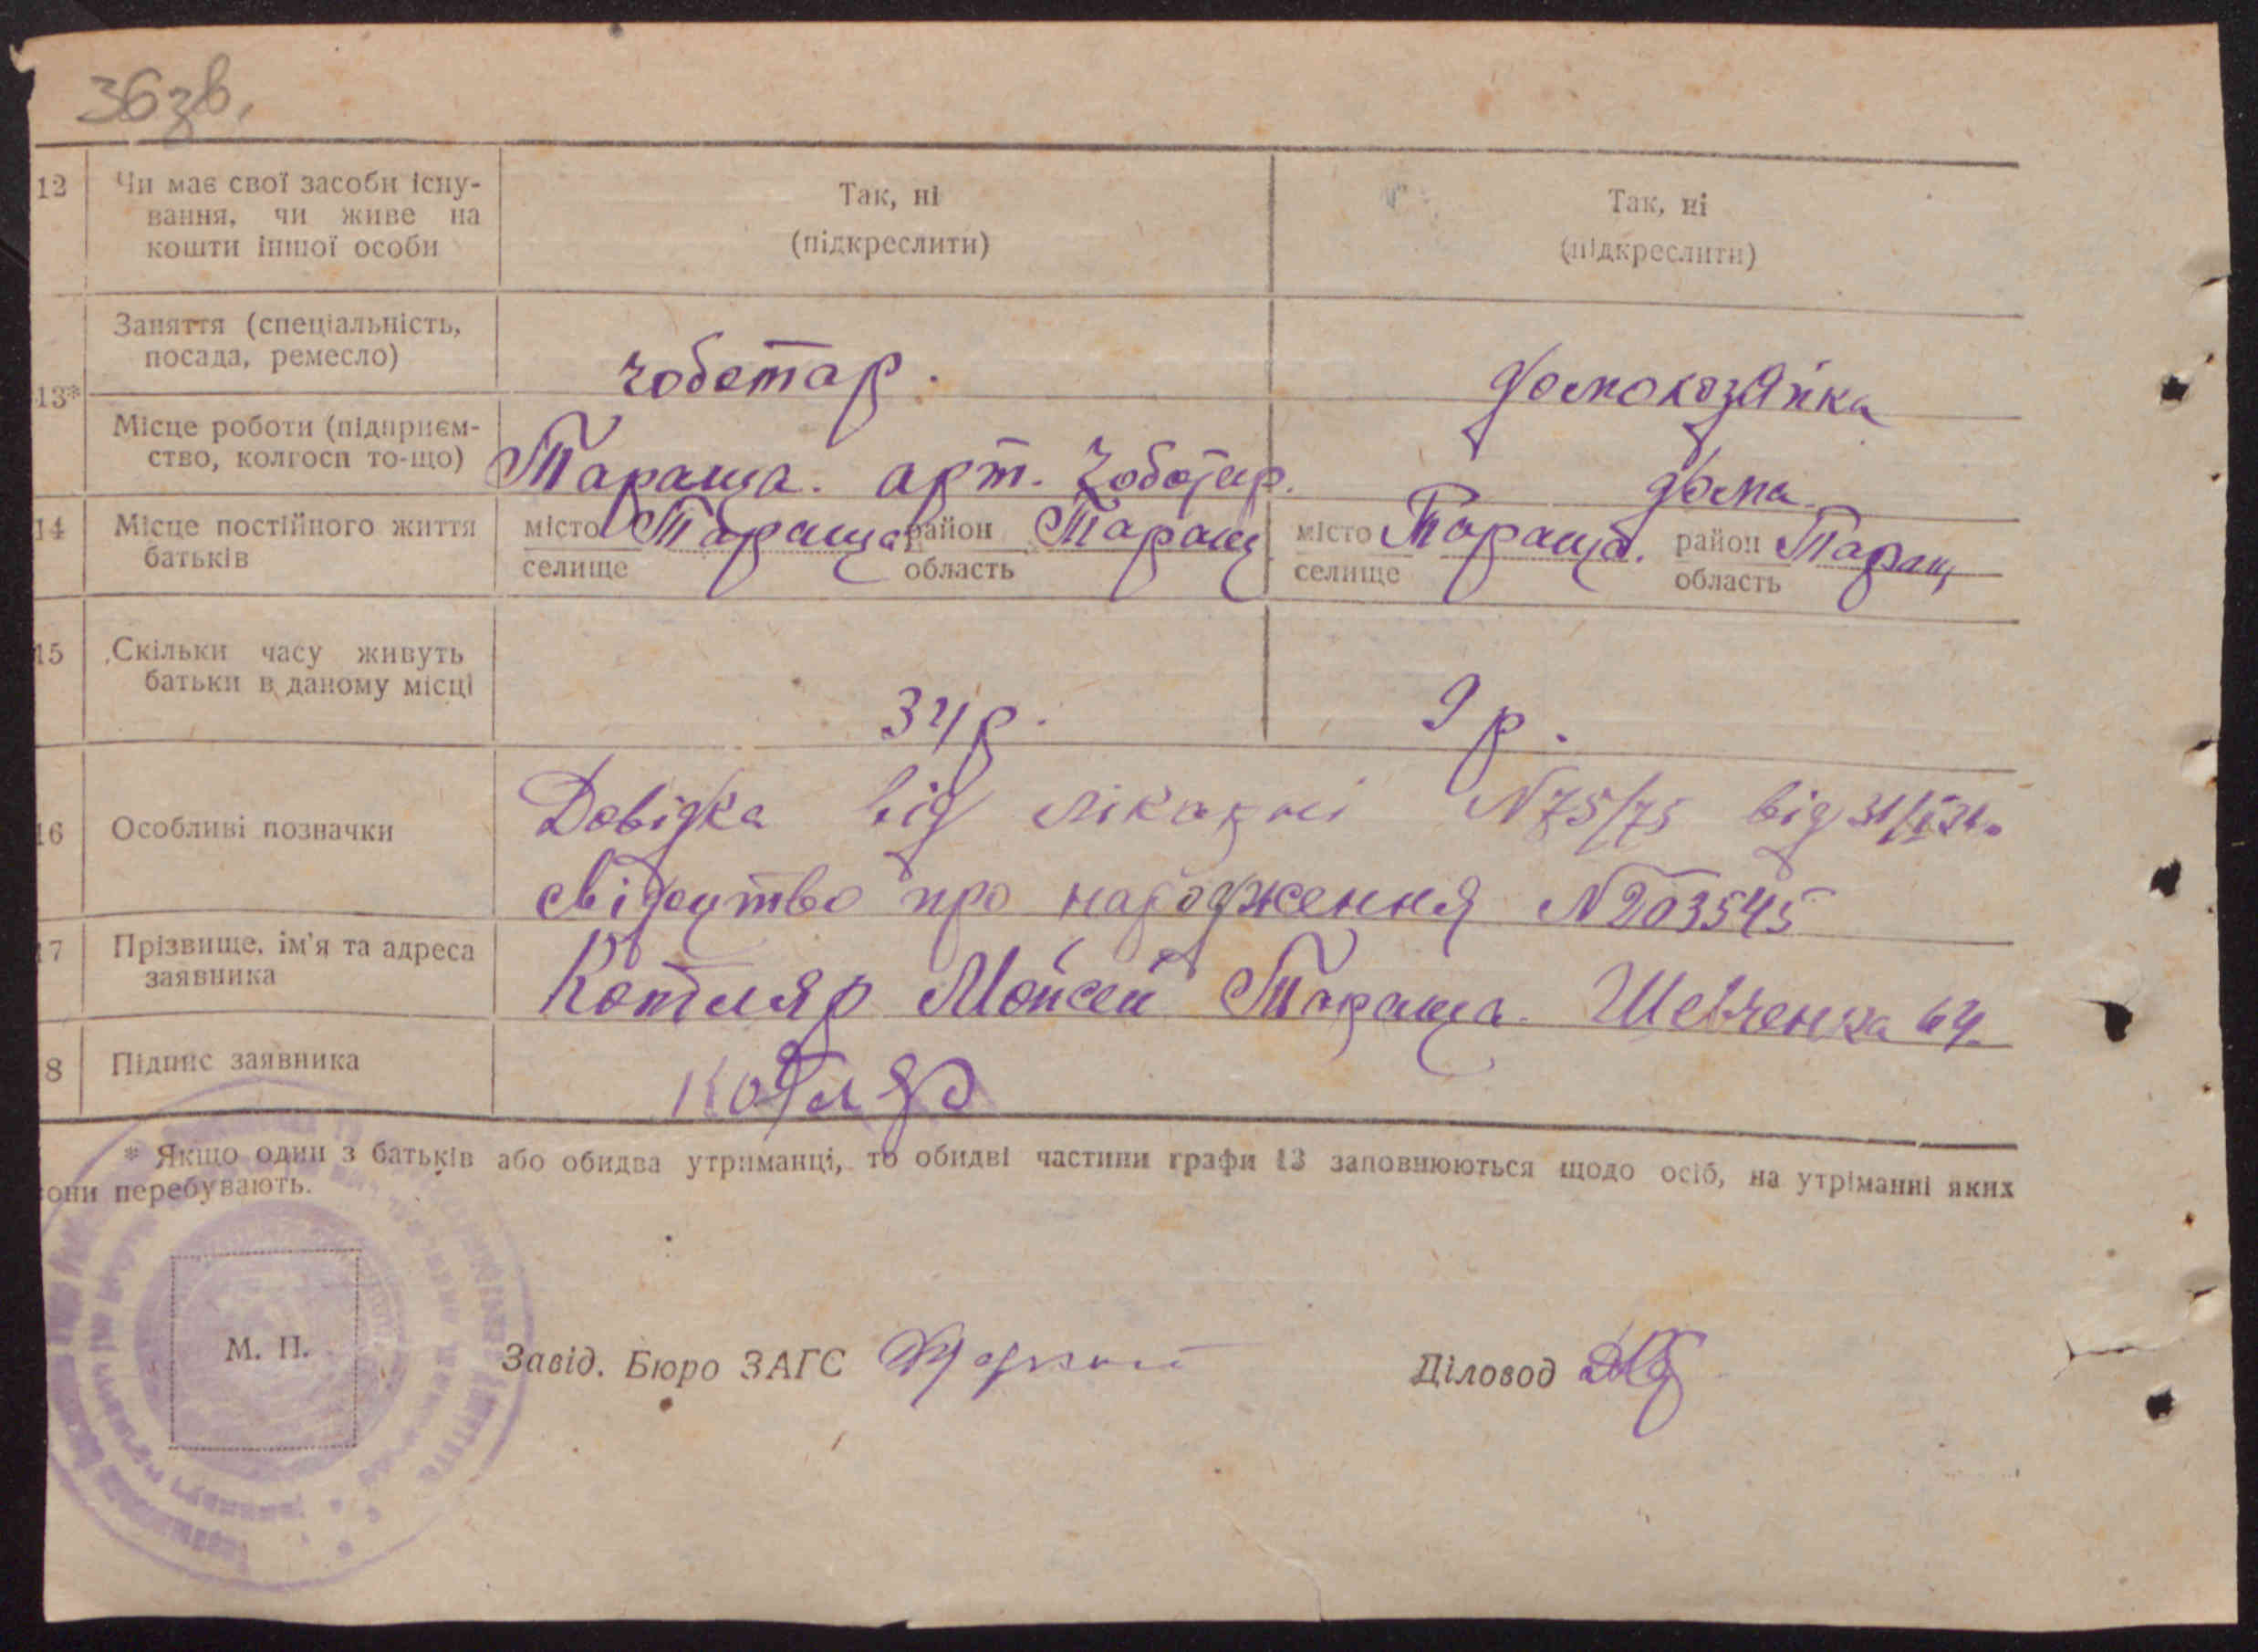 36зв.
12 Чи має свої засоби існу-
вання, чи живе на
кошти іншої особи
Так, ні
(підкреслити)
Так, ні
(підкреслити)
13*
Заняття (спеціальність,
посада, ремесло)
чоботар.
домохозяйка
Місце роботи (підприєм-
ство, колгосп то-що)
Тараща. арт. Чоботар.
дома
14 Місце постійного життя
батьків
місто Тараща район Таращ
селище область
місто Тараща. район Таращ
селище область
15 Скільки часу живуть
батьки в даному місці
34 р.
9 р.
16 Особливі позначки
Довідка від лікарні N75/75 від
свідоцтво про народження N203545
17 Прізвище, ім'я та адреса
заявника
Котляр Мойсей Тараща. Шевченка 64.
8 Підпис заявника
Котляр
* Якщо один з батьків або обидва утриманці, то обидві частини графи 13 заповнюються щодо осіб, на утріманні яких
они перебувають.
М. П.
Завід. Бюро ЗАГС
Діловод